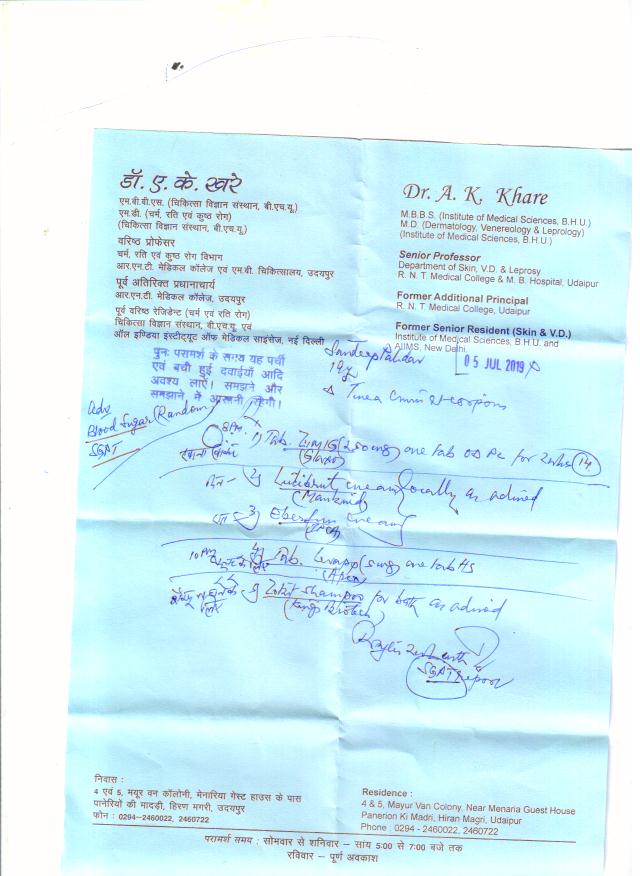 डॉ. ए. के. खरे
एम.बी.बी.एस. (चिकित्सा विज्ञान संस्थान, बी.एच.यू.)
एम.डी. (चर्म, रति एवं कुष्ठ रोग)
(चिकित्सा विज्ञान संस्थान, बी.एच.यू.)
वरिष्ठ प्रोफेसर
चर्म, रति एवं कुष्ठ रोग विभाग
आर.एन.टी. मेडिकल कॉलेज एवं एम.बी. चिकित्सालय, उदयपुर
पूर्व अतिरिक्त प्रधानाचार्य
आर.एन.टी. मेडिकल कॉलेज, उदयपुर
पूर्व वरिष्ठ रेजिडेन्ट (चर्म एवं रति रोग)
चिकित्सा विज्ञान संस्थान, बी.एच.यू. एवं
ऑल इण्डिया इंस्टीट्यूट ऑफ मेडिकल साइंसेज, नई दिल्ली
Dr. A. K. Khare
M.B.B.S. (Institute of Medical Sciences, B.H.U.)
M.D. (Dermatology, Venereology & Leprology)
(Institute of Medical Sciences, B.H.U.)
Senior Professor
Department of Skin, V.D. & Leprosy
R. N. T. Medical College & M. B. Hospital, Udaipur
Former Additional Principal
R. N. T. Medical College, Udaipur
Former Senior Resident (Skin & V.D.)
Institute of Medical Sciences, B.H.U. and
AIIMS, New Delhi.
05 JUL 2019
पुनः परामर्श के समय यह पर्ची
एवं बची हुई दवाईयाँ आदि
अवश्य लाएँ। समझने और
समझाने में आसानी होगी।
Sandeep
19y
Tinea cruris et corporis
Adv
Blood Sugar (Random)
SGPT
8PM 1) Tab. (250mg) one tab OD PC for 2wks (14)
खाना खाके (Glaxo)
दिन - 2) cream locally as advised
(Mankind)
रात - 3) cream
10PM 4) Tab. (5mg) one tab HS
5) shampoo for both as advised
SGPT report
निवास :
4 एवं 5, मयूर वन कॉलोनी, मेनारिया गेस्ट हाउस के पास
पानेरियों की मादड़ी, हिरण मगरी, उदयपुर
फोन : 0294-2460022, 2460722
Residence :
4 & 5, Mayur Van Colony, Near Menaria Guest House
Panerion Ki Madri, Hiran Magri, Udaipur
Phone : 0294 - 2460022, 2460722
परामर्श समय : सोमवार से शनिवार – सांय 5:00 से 7:00 बजे तक
रविवार – पूर्ण अवकाश